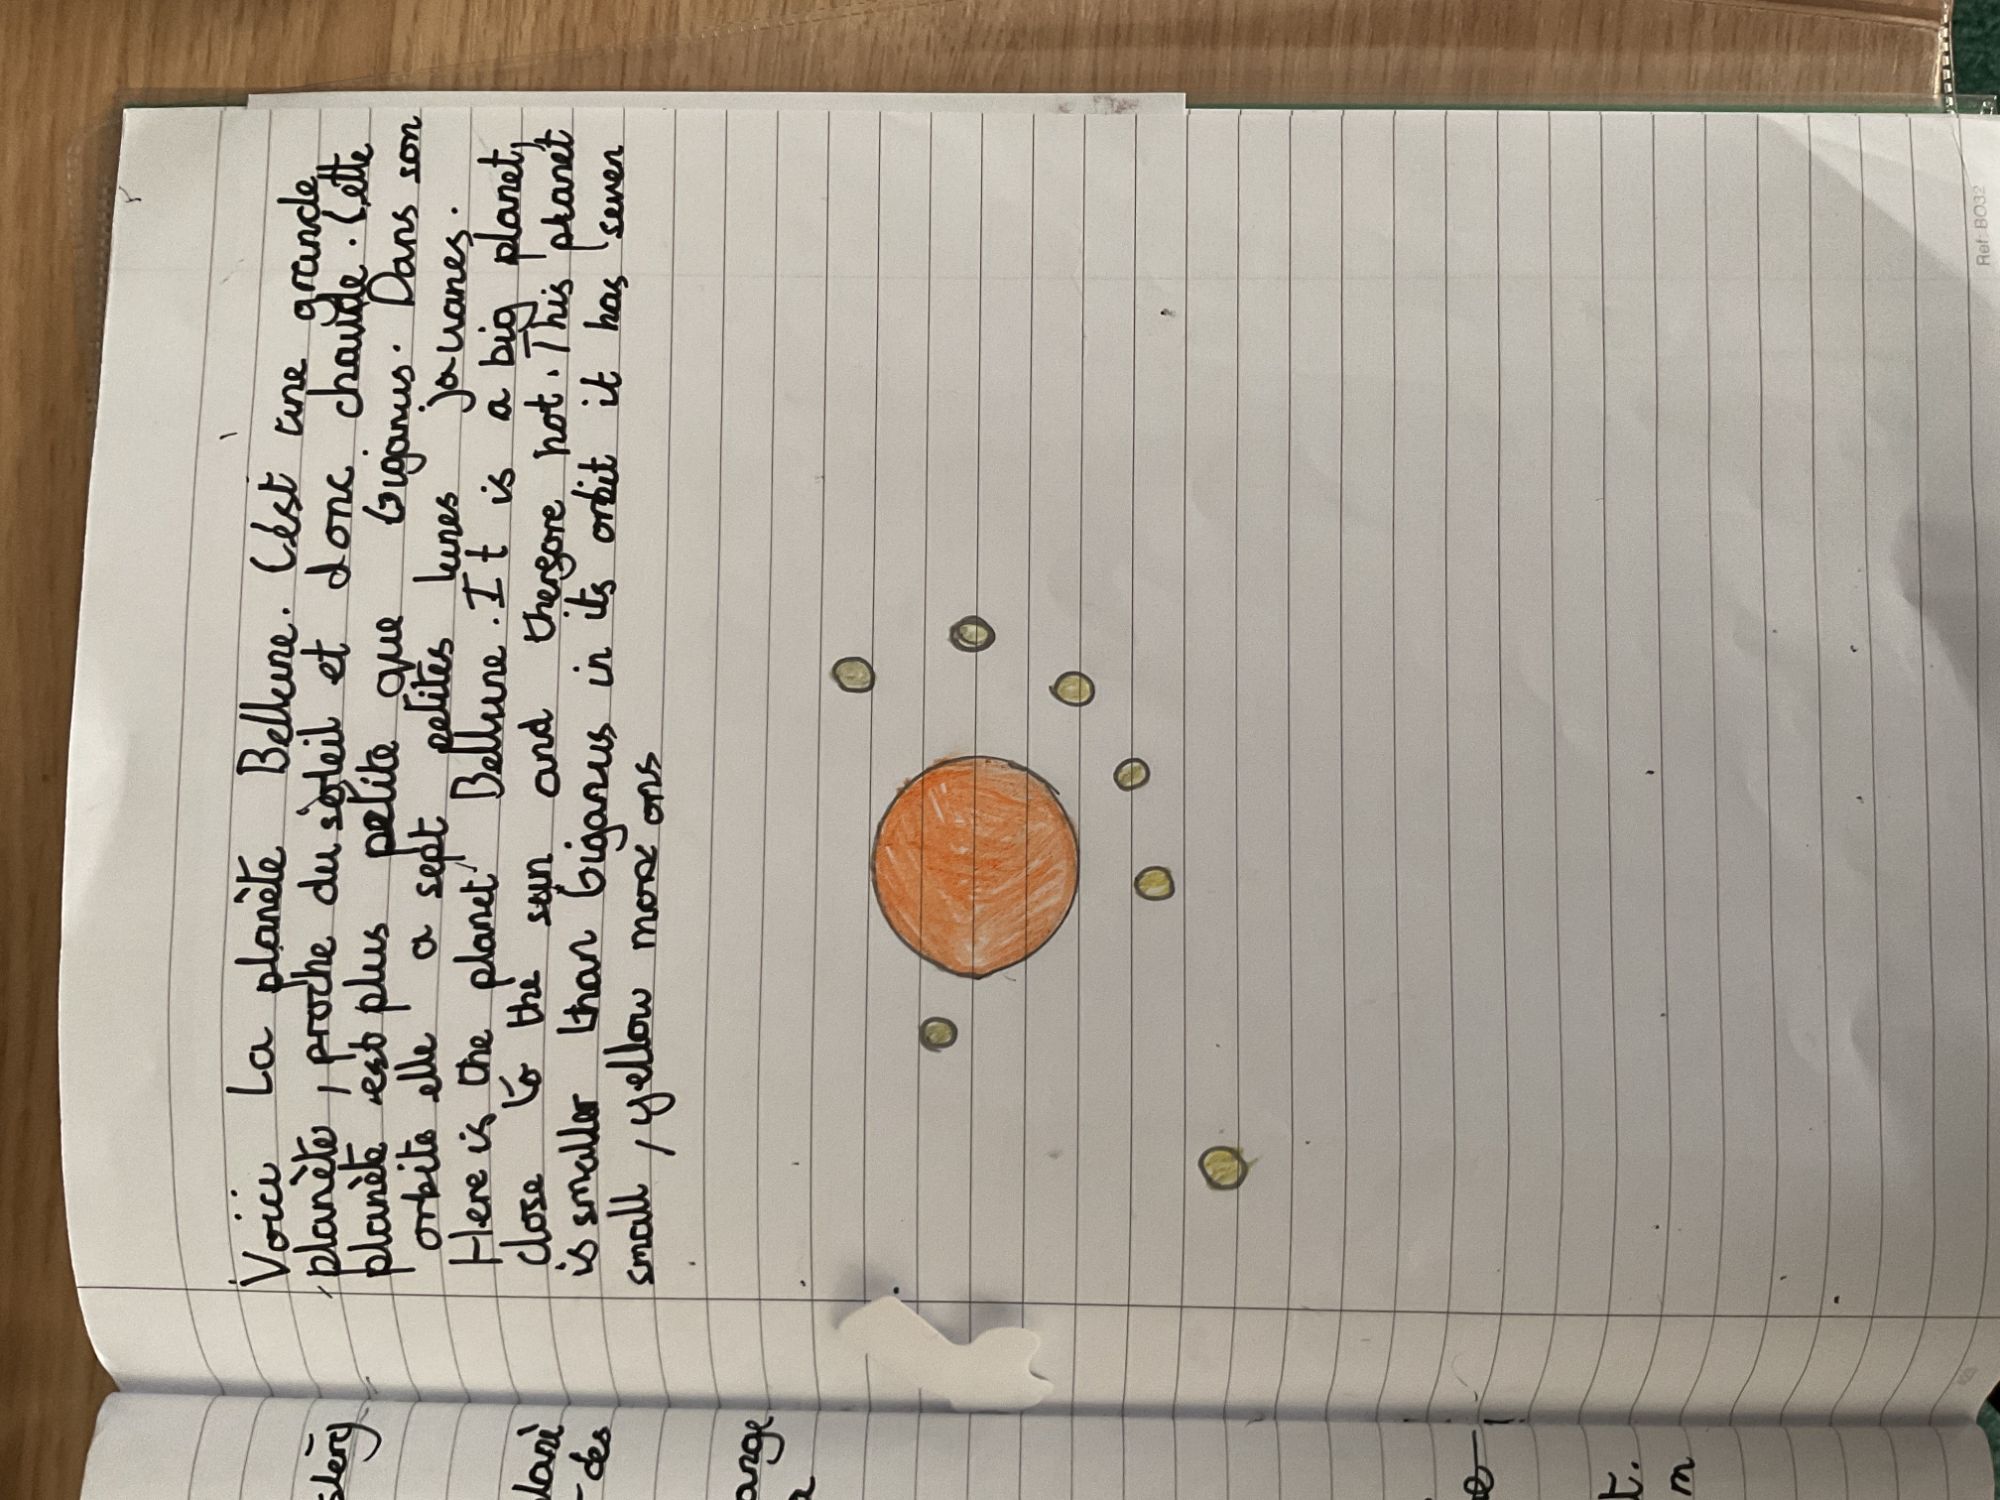 Voici La planète Bellune. C'est une grande
planète, proche du soleil et donc chaude. Cette
planète est plus petite que Giganus. Dans son
orbite elle a sept petites lunes jauanes.
Here is the planet Bellune. It is a big planet,
close to the sun and theregore hot. This planet
is smaller than Giganus in its orbit it has seven
small, yellow moons
Ref: BO32
ange
des
t.
m